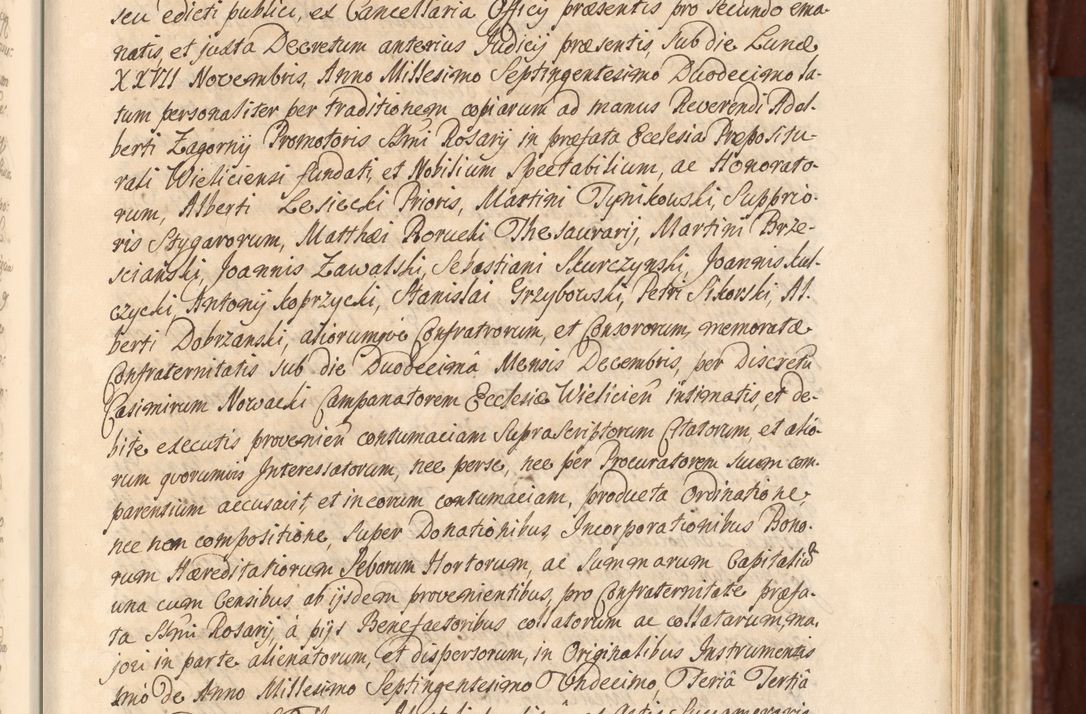 seu edicti publici, ex Cancellaria Officij præsentis pro secundo ema-
natis, et juxta Decretum anterius Judicij præsentis, sub die Lunæ
XXVII Novembris, Anno Millesimo Septingentesimo Duodecimo la-
tum personaliter per traditionem copiarum ad manus Reverendi Adal-
berti Zagornij Promotoris SSmi Rosarij in præfata Ecclesia Præpositu-
rali Wieliciensi fundati, et Nobilium Spectabilium, ac Honorato-
rum, Alberti Lesiecki Prioris, Martini Tynikowski, Supprio-
ris Stygarorum, Matthæi Borucki Thesaurarij, Martini Brze-
scianski, Joannis Zawalski, Sebastiani Skurczynski, Joannis Kul-
czycki, Antonij Koprzycki, Stanislai Grzybowski, Petri Sikorski, Al-
berti Dobrzanski, aliorumqve Confratrorum, et Consororum memoratæ
Confraternitatis sub die Duodecimâ Mensis Decembris, per Discretū
Casimirum Nowacki Campanatorem Ecclesiæ Wielicień intimatis, et de-
bite executis provenień contumaciam suprascriptorum Citatorum, et alio-
rum quorumvis Interessatorum, nec per se, nec per Procuratorem suum com-
parentium accusavit, et in eorum contumaciam, producta Ordinatione,
nec non compositione, super Donationibus, Incorporationibus Bono-
rum Hæreditatiorum Seborum Hortorum, ac Summarum Capitaliū
una cum Censibus ab ijsdem provenientibus, pro Confraternitate præfa-
ta SSmi Rosarij, à pijs Benefactoribus collatorum ac collatarum, ma-
jori in parte alienatorum, et dispersorum, in Originalibus Instrumentis
Imó de Anno Millesimo Septingentesimo Undecimo, Feriâ Tertiâ